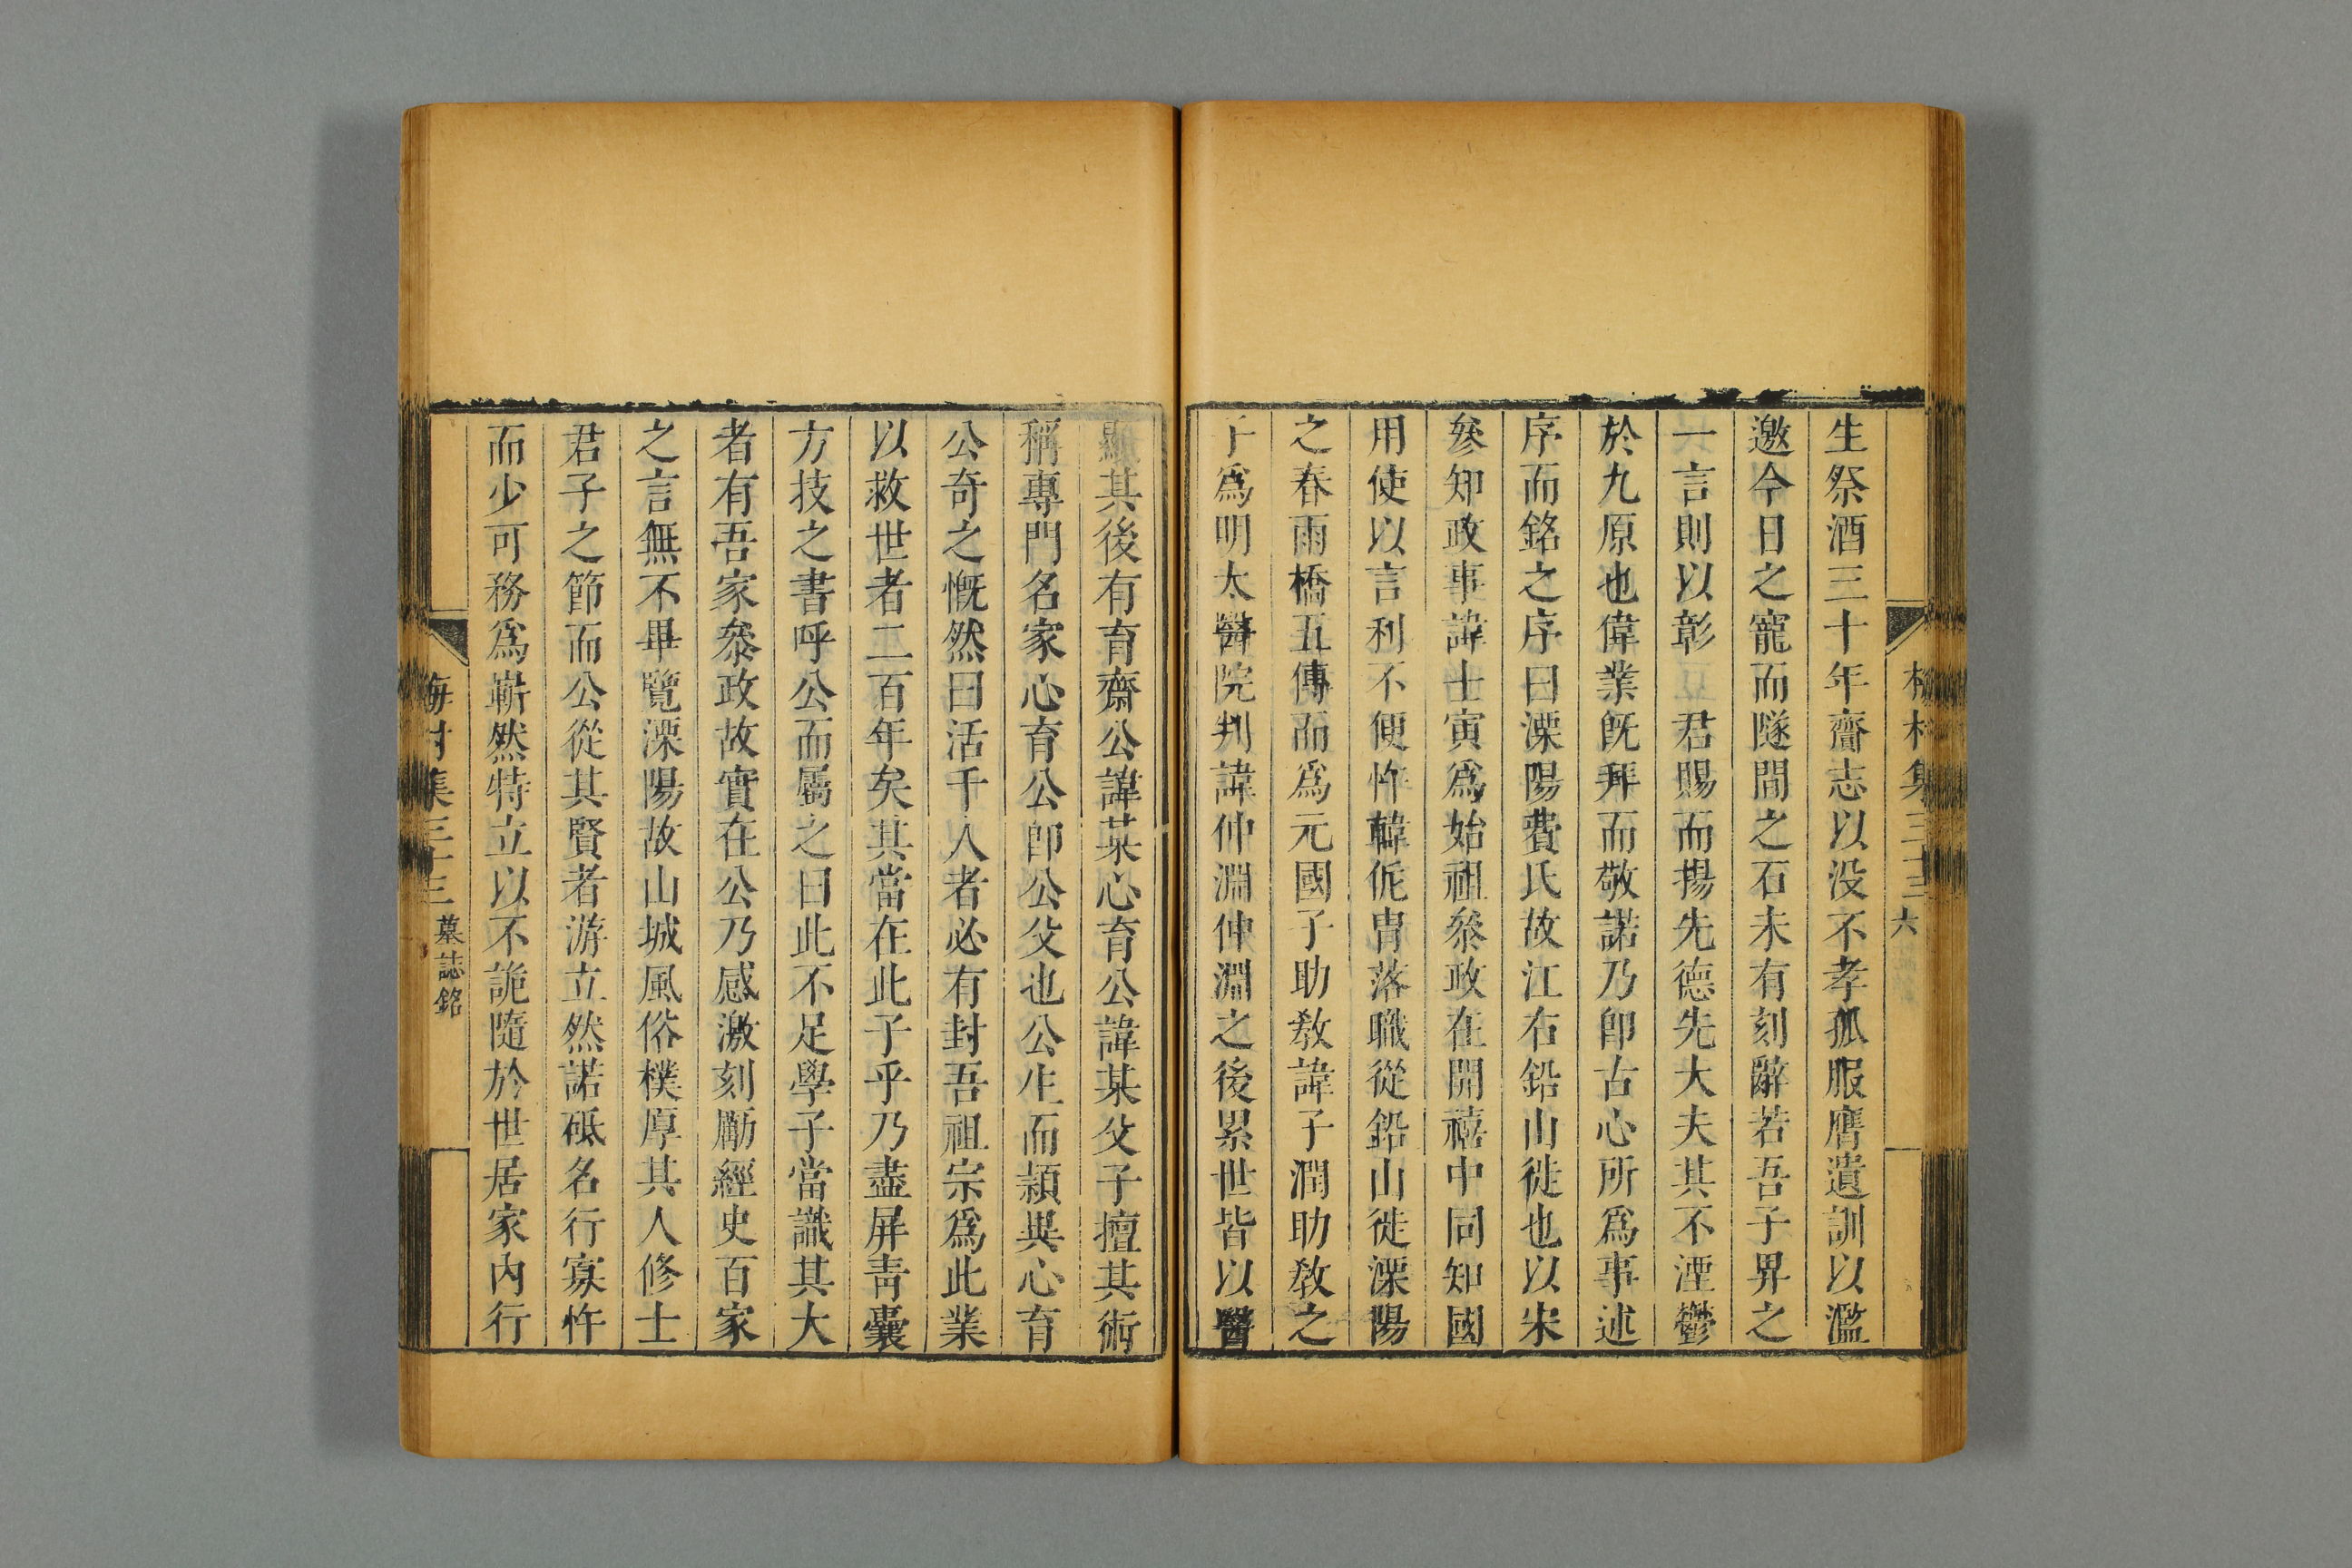 梅村集三十三
六
生祭酒三十年齎志以没不孝孤服膺遺訓以濫
邀今日之寵而隧間之石未有刻辭若吾子畀之
一言則以彰君賜而揚先德先大夫其不湮鬱
於九原也偉業旣拜而敬諾乃卽古心所爲事述
序而銘之序曰溧陽費氏故江右鉛山徙也以宋
叅知政事諱士寅爲始祖叅政在開禧中同知國
用使以言利不便忤韓侂胄落職從鉛山徙溧陽
之春雨橋五傳而爲元國子助敎諱子潤助敎之
子爲明太醫院判諱仲淵仲淵之後累世皆以醫
顯其後有育齋公諱某心育公諱某父子擅其術
稱專門名家心育公卽公父也公生而穎異心育
公奇之慨然曰活千人者必有封吾祖宗爲此業
以救世者二百年矣其當在此子乎乃盡屏靑囊
方技之書呼公而屬之曰此不足學子當識其大
者有吾家叅政故實在公乃感激刻勵經史百家
之言無不畢覽溧陽故山城風俗樸厚其人修士
君子之節而公從其賢者游立然諾砥名行寡忤
而少可務爲嶄然特立以不詭隨於世居家內行
梅村集三十三
墓誌銘